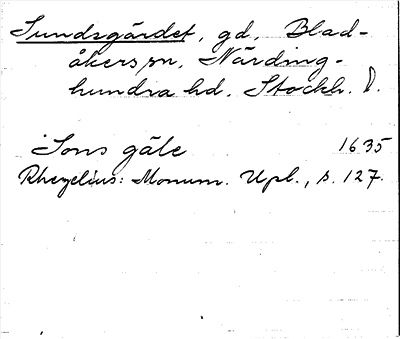 Sundsgärdet, gd, Blad-
åkers sn, Närding-
hundra hd, Stockh.
Sons gäle 1635
Rhezelius: Monum. Upl., s. 127.